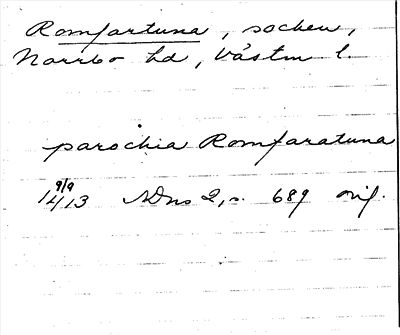 Romfartuna, socken,
Norrbo hd, Västm l.
parochia Romfaratuna
9/9
1413 SDns 2, s. 689 orig.